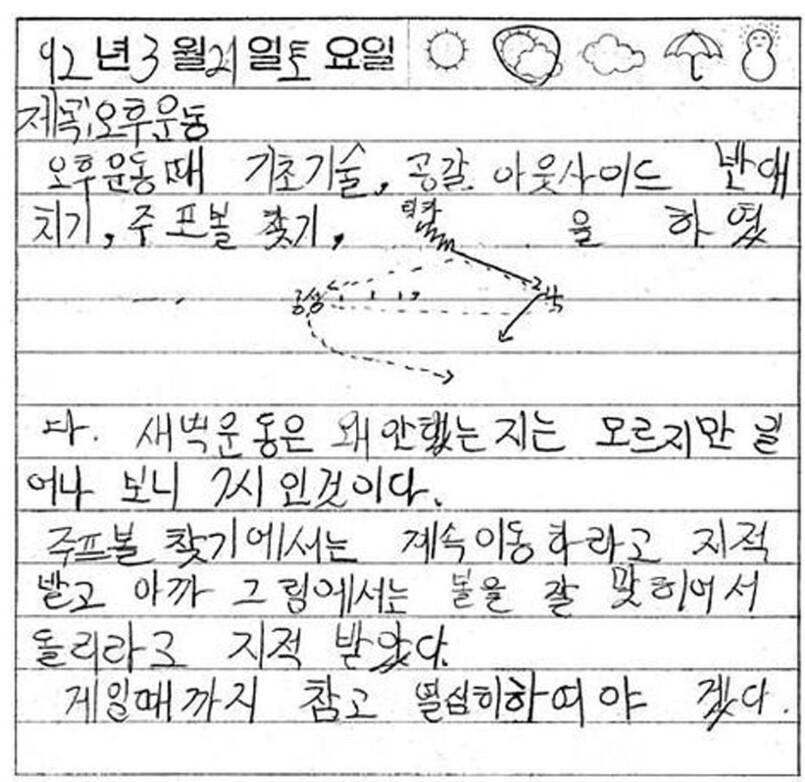 92년 3월 21일 토요일
제목:오후운동
오후운동때 기초기술, 공갈. 아웃사이드 반대
치기, 주프볼 찾기, 을 하였
다. 새벽운동은 왜 안했는지는 모르지만 일
어나 보니 7시 인것이다.
주프볼 찾기에서는 계속이동하라고 지적
받고 아까 그림에서는 볼을 잘 맞히어서
돌리라고 지적 받았다.
게임때까지 참고 열심히하여야 겠다.